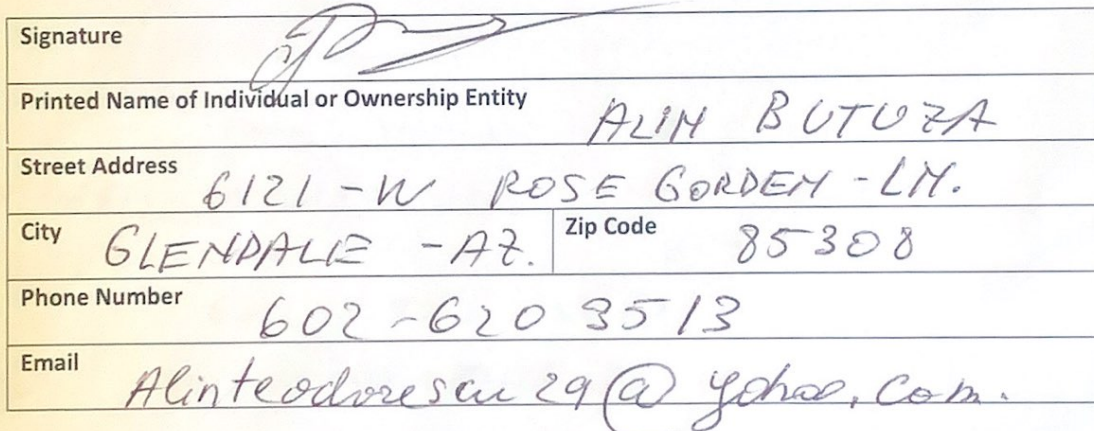 Signature
Printed Name of Individual or Ownership Entity ALIN BUTUZA
Street Address 6121 - W ROSE GORDEN - LN.
City GLENDALE - AZ. Zip Code 85308
Phone Number 602 - 620 3513
Email Alinteodorescu 29 @ yahoo, com.